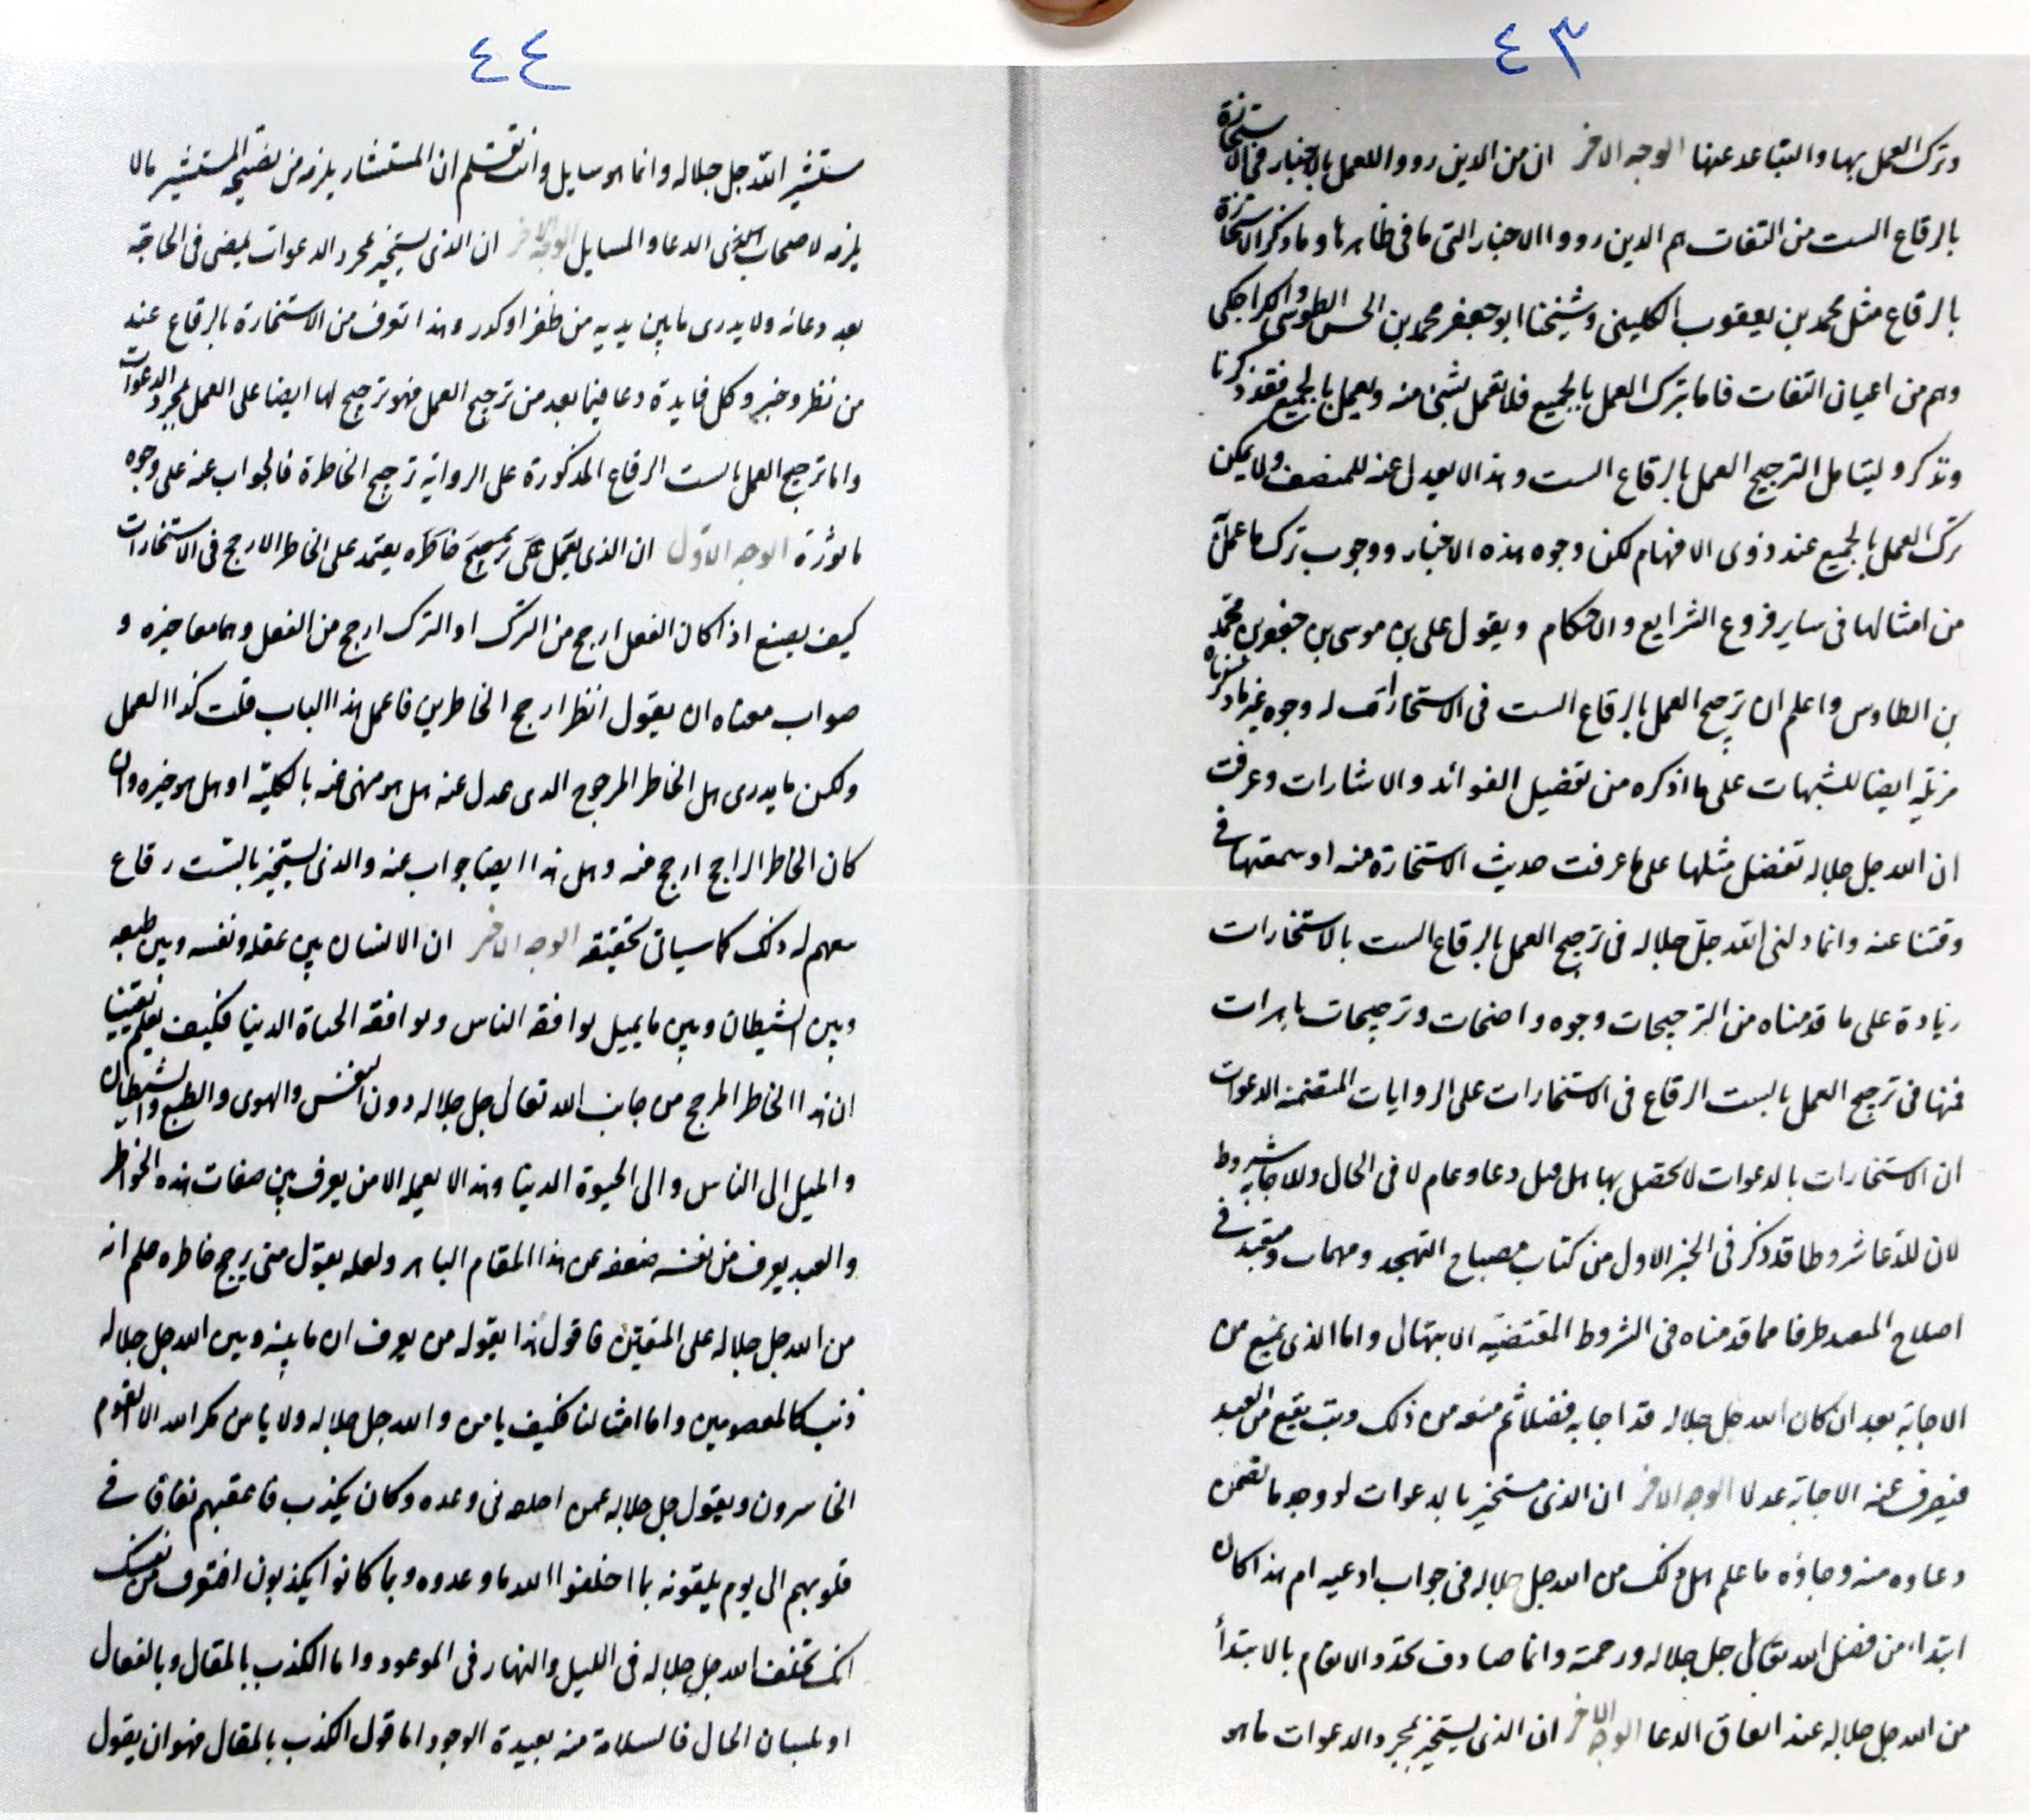 ٤٣
وترك العمل بها والتباعد عنها الوجه الاخر ان من الدين رووا العمل بالاخبار فى الاستخارة
بالرقاع الست من الثقات هم الدين رووا الاخبار التى ما فى ظاهرها وما ذكر الاستخارة
بالرقاع مثل محمد بن يعقوب الكلينى وشيخنا ابو جعفر محمد بن الحسن الطوسى والكراجكى
وهم من اعيان الثقات فاما بترك العمل بالجميع فلا تعمل بشئ منه ويعمل بالجميع فقد ذكرنا
وتذكر وليتامل الترجيح العمل بالرقاع الست وهذا لا يعدل عنه للمنصف ولا يمكن
ترك العمل بالجميع عند ذوى الافهام لكن وجوه هذه الاخبار ووجوب ترك ما عمل
من امثالها فى ساير فروع الشرايع والاحكام ويقول على بن موسى بن جعفر بن محمد
بن الطاوس واعلم ان ترجيح العمل بالرقاع الست فى الاستخارات له وجوه غير ما ذكرناه
مزيله ايضا للشبهات على ما اذكره من تفضيل الفوائد والاشارات وعرفت
ان الله جل جلاله تفضل مثلها على ما عرفت حديث الاستخارة منه او سمعتها فى
وقتنا عنه وانما دلنى الله جل جلاله فى ترجيح العمل بالرقاع الست بالاستخارات
زيادة على ما قدمناه من الترجيحات وجوه واضحات وترجيحات باهرات
فمنها فى ترجيح العمل بالست الرقاع فى الاستخارات على الروايات المتضمنة الدعوات
ان الاستخارات بالدعوات لا تحصل بها اهل قبل دعا وعام لا فى الحال وللاجابة شروط
لان للدعا شروطا قد ذكر فى الجز الاول من كتاب مصباح التهجد ومهمات ومتعبد فى
اصلاح المتعبد طرفا مما قدمناه فى الشروط المقتضيه الابتهال واما الذى يمنع من
الاجابة بعد ان كان الله جل جلاله قد اجابه فضلا ثم منعه من ذلك وبت يقع من العبد
فيصرف عنه الاجابة عدلا الوجه الاخر ان الذى مستخير بالدعوات لو وجد ما تضمن
دعاوه منه وجاؤه ما علم هل ذلك من الله جل جلاله فى جواب ادعيه ام هذا كان
ابتداء من فضل الله تعالى جل جلاله ورحمة وانما صادف تجدد الانعام بالابتدأ
من الله جل جلاله عند اتفاق الدعا الوجه الاخر ان الذى يستخير بمجرد الدعوات ما هو
٤٤
مستشير الله جل جلاله وانما هو سايل وانت تعلم ان المستشار يلزمه من نصيحه المستشير ما لا
يلزمه لاصحاب الدعا والمسايل الوجه الاخر ان الذى يستخير بمجرد الدعوات يمضى فى الحاجة
بعد دعائه ولا يدرى ما بين يديه من ظفر او كدر وهذا تعرف من الاستخارة بالرقاع عند
من نظر وخبر وكل فايدة دعا فيما بعد من ترجيح العمل فهو ترجيح لها ايضا على العمل بمجرد الدعوات
واما ترجيح العمل بالست الرقاع المذكورة على الرواية ترجيح الخاطرة فالجواب عنه على وجوه
ماثورة الوجه الاول ان الذى يعمل على ترجيح خاطره يعتمد على الخاطر الارجح فى الاستخارات
كيف يصنع اذا كان الفعل ارجح من الترك او الترك ارجح من الفعل وهما معا خيره و
صواب معناه ان يقول انظر ارجح الخاطرين فاعمل هذا الباب قلت كذا العمل
ولكن ما يدرى هل الخاطر المرجوح الدى عدل عنه هل هو منهى عنه بالكلية او هل هو خيره وان
كان الخاطر الراجح ارجح منه وهل هذا ايضا جواب عنه والدى يستخير بالست رقاع
يفهم له ذلك كما سياتى تحقيقه الوجه الاخر ان الانسان بين عقله ونفسه وبين طبعه
وبين الشيطان وبين ما يميل لوافقه الناس ولوافقه الحياة الدنيا فكيف يعلم يقينا
ان هذا الخاطر المرجح من جانب الله تعالى جل جلاله دون النفس والهوى والطبع والشيطان
والميل الى الناس والى الحيوة الدنيا وهذا لا يعلمه الا من يعرف بين صفات هذه الخواطر
والعبد يعرف من نفسه ضعفه عن هذا المقام الباهر ولعله يقول متى رجح خاطره علم انه
من الله جل جلاله على اليقين فاقول هذا يقوله من يعرف ان ما بينه وبين الله جل جلاله
ذنب كالمعصومين واما امثالنا فكيف يامن والله جل جلاله ولا يامن مكر الله الا القوم
الخاسرون ويقول جل جلاله عمن اخلف فى وعده وكان يكذب فاعقبهم نفاق فى
قلوبهم الى يوم يلقونه بما اخلفوا الله ما وعدوه وبما كانوا يكذبون افتعرف من نفسك
انك تخلف الله جل جلاله فى الليل والنهار فى الموعود واما الكذب بالمقال وبالفعال
او بلسان الحال فالسلامة منه بعيدة الوجود اما قول الكذب بالمقال فهو ان يقول